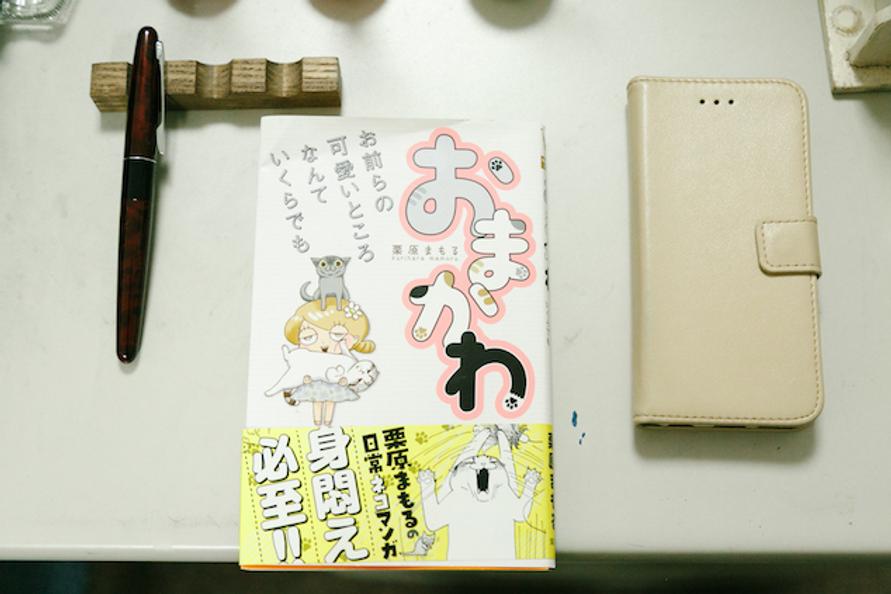 おまかわ
お前らの
可愛いところ
なんて
いくらでも
栗原まもる
kurihara mamoru
栗原まもるの
日常ネコマンガ
身悶え
必至!!